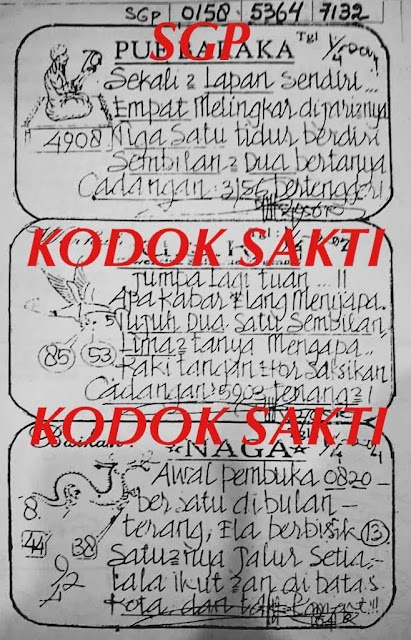 SGP 0158 5364 7132
SGP
Tgl
Sekali2 Lapan Sendiri...
Empat Melingkar dijari2nya
4908
Tiga Satu tidur berdiri
Sembilan2 Dua bertanya
Cadangan: 3156 bertengger!
KODOK SAKTI
Jumpa lagi tuan...!!
Apa kabar Elang Menyapa.
Tujuh Dua Satu Sembilan
Lima2 tanya Mengapa..
85 53
Kaki tangan Ekor Saksikan
Cadangan: 5902 tenang2!
KODOK SAKTI
NAGA
Awal pembuka 0820 -
8.
bersatu dibulan -
terang, Ela berbisik 13.
44 38
Satu2nya Jalur Setia,-
9 2
4
Lala ikutan di batas
Kota, dan